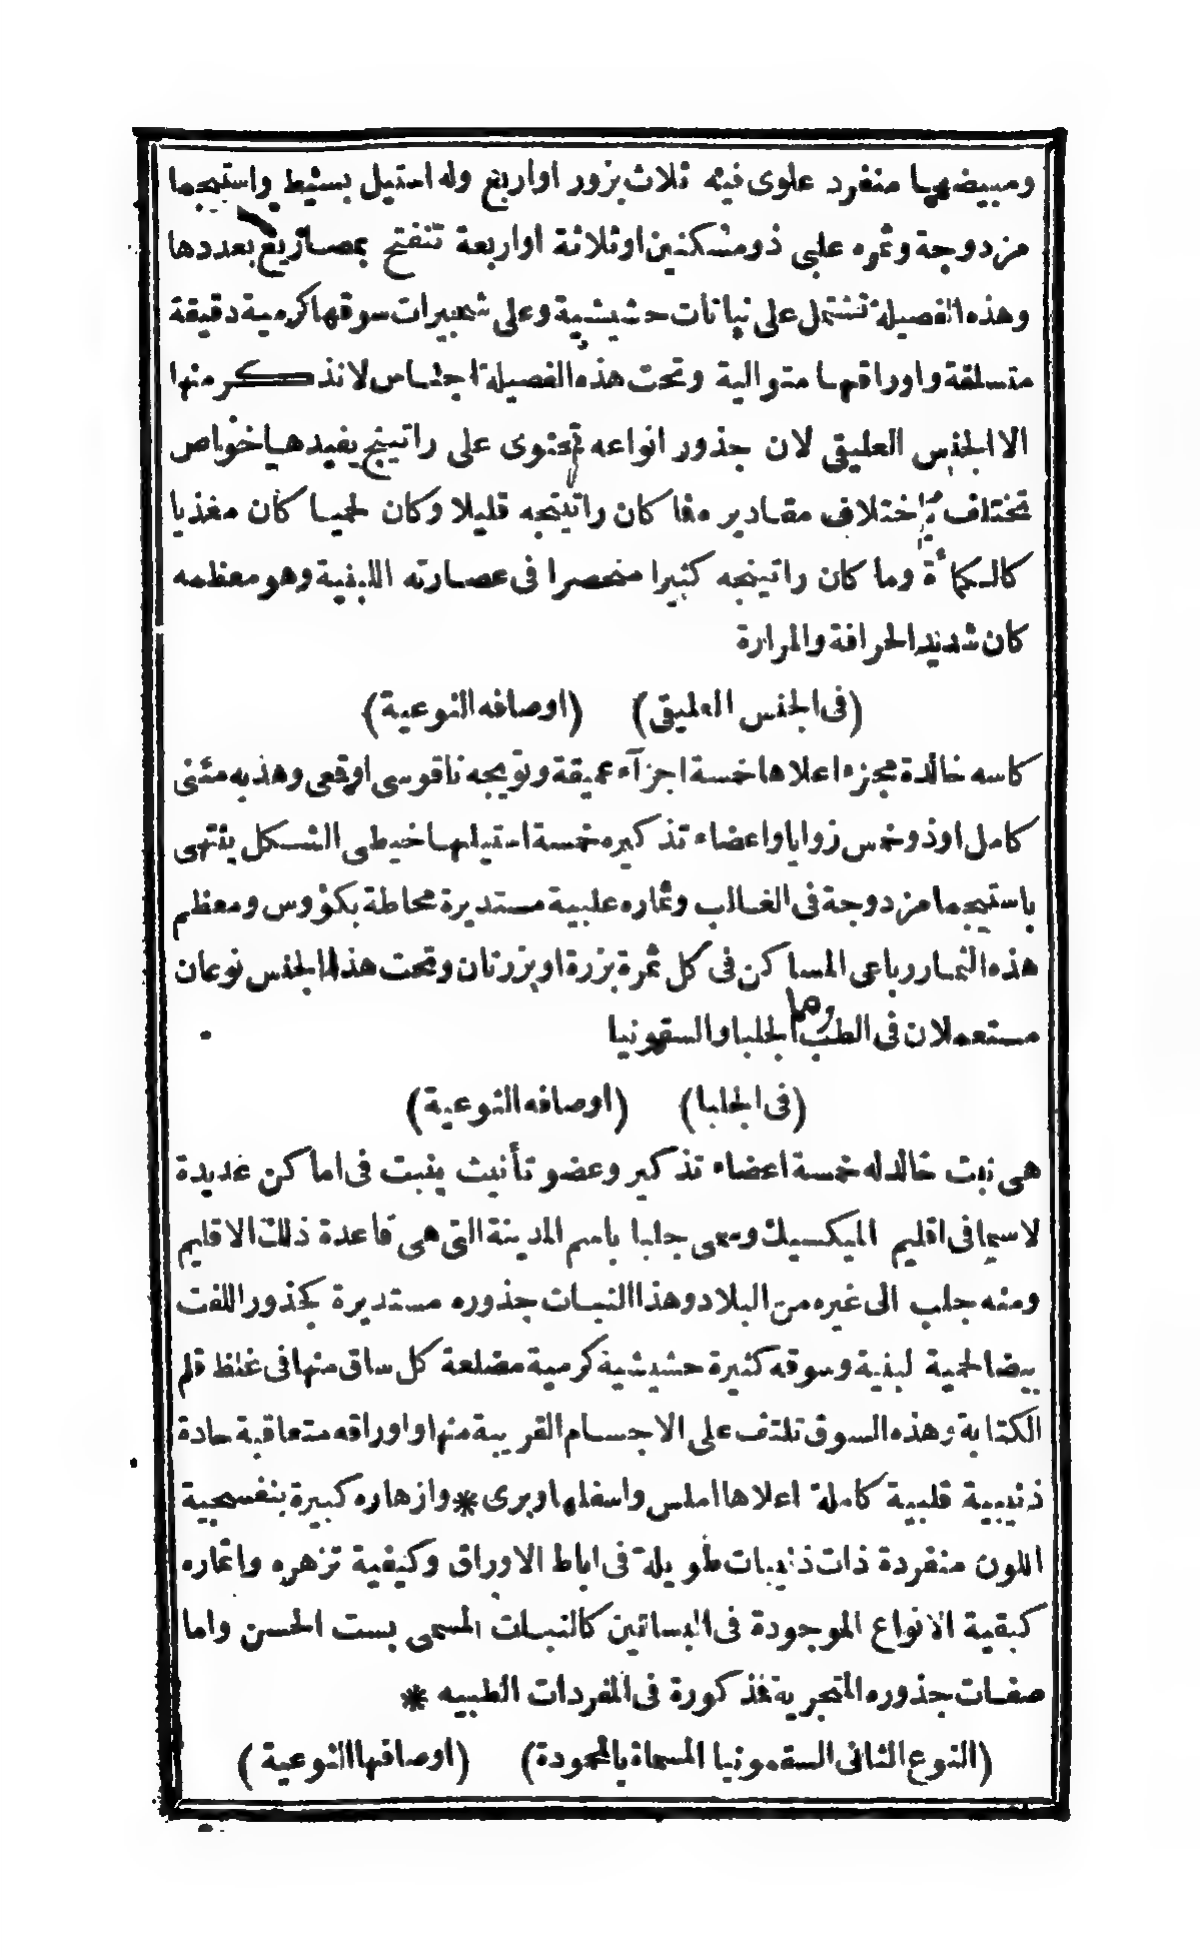 ومبيضهما منفرد علوى فيه ثلاث بزور او اربع وله استيل بسيط واستيجما
مزدوجة وثمره علبى ذو مسكنين او ثلاثة او اربعة تنفتح بمصاريع بعددها
وهذه الفصيلة تشتمل على نباتات حشيشية وعلى شجيرات سوقها كرمية دقيقة
متسلقة واوراقها متوالية وتحت هذه الفصيلة اجناس لا نذكر منها
الا الجنس العليقى لان جذور انواعه تحتوى على راتينج يفيدها خواص
تختلف باختلاف مقادير مفا كان راتينجه قليلا وكان لحميا كان مغذيا
كالكمأة وما كان راتينجه كثيرا منحصرا فى عصارته اللبنية وهو معظمه
كان شديد الحرافة والمرارة
(فى الجنس العليقى) (اوصافه النوعية)
كاسه خالدة مجزء اعلاها خمسة اجزآء عميقة وتويجه ناقوسى او قمعى وهذبه مثنى
كامل او ذو خمس زوايا واعضاء تذكيره خمسة استيلها خيطى الشكل ينتهى
باستيجما مزدوجة فى الغالب وثماره علبية مستديرة محاطة بكؤوس ومعظم
هذه الثمار رباعى المساكن فى كل ثمرة بزرة او بزرتان وتحت هذا الجنس نوعان
مستعملان فى الطب وهما الجلبا والسقمونيا
(فى الجلبا) (اوصافه النوعية)
هى نبت خالد له خمسة اعضاء تذكير وعضو تأنيث ينبت فى اماكن عديدة
لا سيما فى اقليم الميكسيك وسمى جلبا باسم المدينة التى هى قاعدة ذلك الاقليم
ومنه جلب الى غيره من البلاد وهذا النبات جذوره مستديرة كجذور اللفت
بيضا لحمية لبنية وسوقه كثيرة حشيشية كرمية مضلعة كل ساق منها فى غلظ قلم
الكتابة وهذه السوق تلتف على الاجسام القريبة منها واوراقه متعاقبة حادة
ذنيبية قلبية كاملة اعلاها املس واسفلها وبرى * وازهاره كبيرة بنفسجية
اللون منفردة ذات ذنيبات طويلة فى اباط الاوراق وكيفية تزهره واثماره
كبقية الانواع الموجودة فى البساتين كالنبات المسمى بست الحسن واما
صفات جذوره المتجرية فمذكورة فى المفردات الطبيه *
(النوع الثانى السقمونيا المسماة بالمحمودة) (اوصافها النوعية)